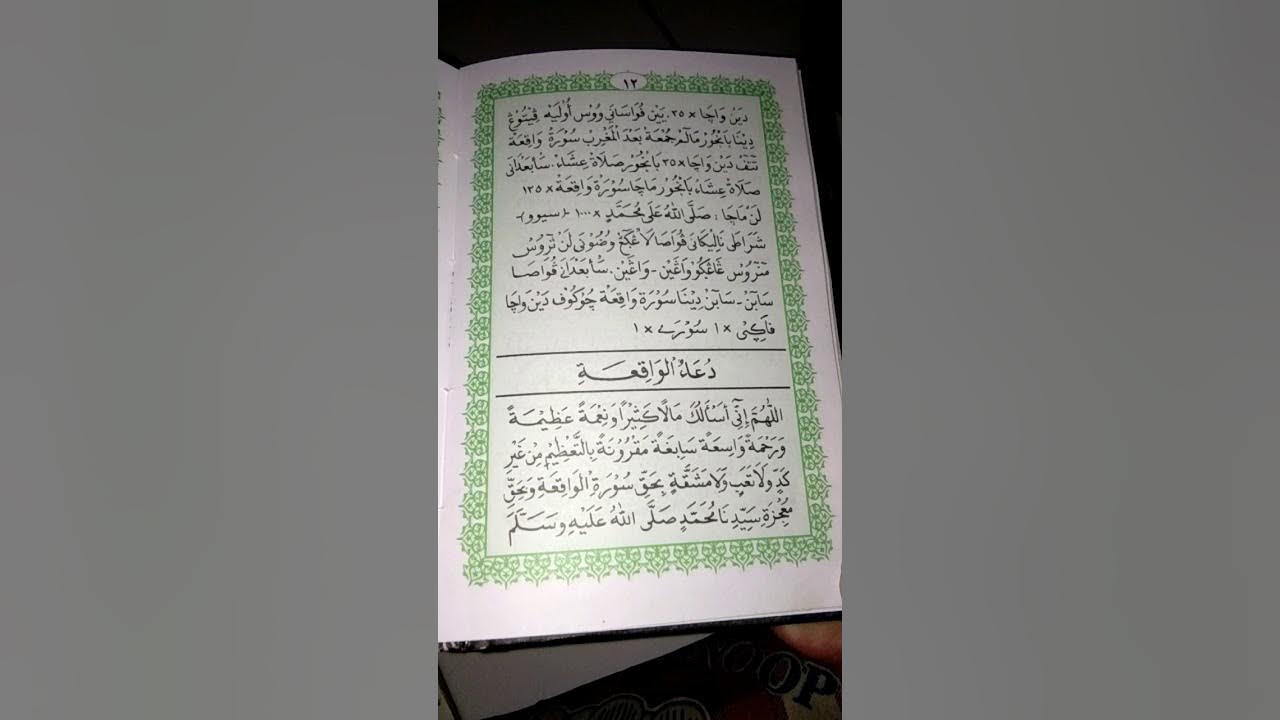 ١٢
دَيْن وَاچَا × ٢٥. يَيْن فُوَاسَانَي وُوْس أَوْلَيْه ڤِيْتُوْڠ
دِيْنَا بَانْجُوْر مَالَمْ جُمْعَةْ بَعْدَ الْمَغْرِبْ سُوْرَةْ وَاقِعَةْ
تَتَفْ دَيْن وَاچَا × ٢٥ بَانْجُوْر صَلَاةْ عِشَاءْ. سَأْبَعْدَانَى
صَلَاةْ عِشَاءْ بَانْجُوْر مَاچَا سُوْرَةْ وَاقِعَةْ × ١٢٥
لَنْ مَاچَا : صَلَّى اللهُ عَلَى مُحَمَّدٍ × ١٠٠٠ -(سيوو)-
شَرَاطَى نَالِيْكَانَى فُوَاصَا وُضُوْنَى لَنْ
وَاڠَيْن - وَاڠَيْن. سَأْبَعْدَانَى فُوَاصَا
سَابَنْ - سَابَنْ دِيْنَا سُوْرَةْ وَاقِعَةْ چُوْكُوْف دَيْن وَاچَا
× ١ سُوْرَى × ١
دُعَاءُ الْوَاقِعَـةِ
اَللّٰهُمَّ إِنِّيْ أَسْأَلُكَ مَالًا كَثِيْرًا وَنِعْمَةً عَظِيْمَةً
وَرَحْمَةً وَاسِعَةً سَابِغَةً مَقْرُوْنَةً بِالتَّعْظِيْمِ مِنْ غَيْرِ
كَدٍّ وَلَا تَعَبٍ وَلَا مَشَقَّةٍ بِحَقِّ سُوْرَةِ الْوَاقِعَةِ وَبِحَقِّ
مُعْجِزَةِ سَيِّدِنَا مُحَمَّدٍ صَلَّى اللهُ عَلَيْهِ وَسَلَّمَ
OOP